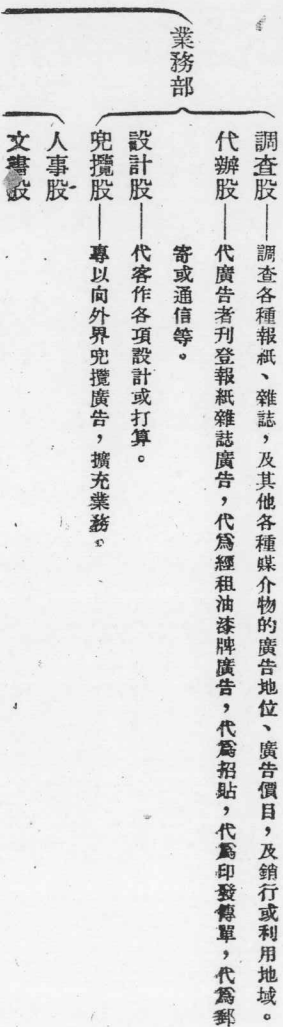 業務部
調查股——調查各種報紙、雜誌，及其他各種媒介物的廣告地位、廣告價目，及銷行或利用地域。
代辦股——代廣告者刊登報紙雜誌廣告，代爲經租油漆牌廣告，代爲招貼，代爲印發傳單，代爲郵
寄或通信等。
設計股——代客作各項設計或打算。
兜攬股——專以向外界兜攬廣告，擴充業務。
人事股
文書股